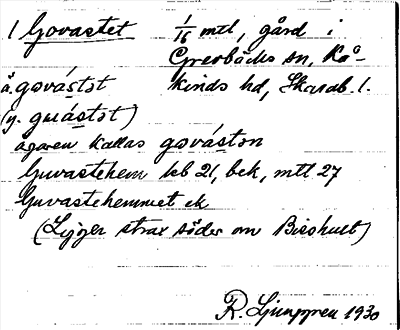 1 Govastet 1/16 mtl, gård i
Grevbäcks sn, Kå-
ä. govástət kinds hd, Skarab. l.
(y. guástət)
ägaren kallas govástən
Guvastehem kb 21, bek, mtl 27
Guvastehemmet ek
(Ligger strax söder om Bisshult)
R. Ljunggren 1930